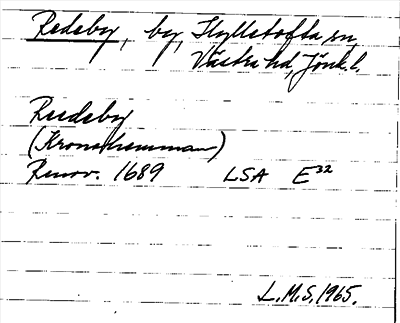 Redeby, by, Hyllstofta sn,
Västra hd, Jönk. l.
Reedeby
(Kronohemman)
Renov. 1689 LSA E32
L.M.S. 1965.